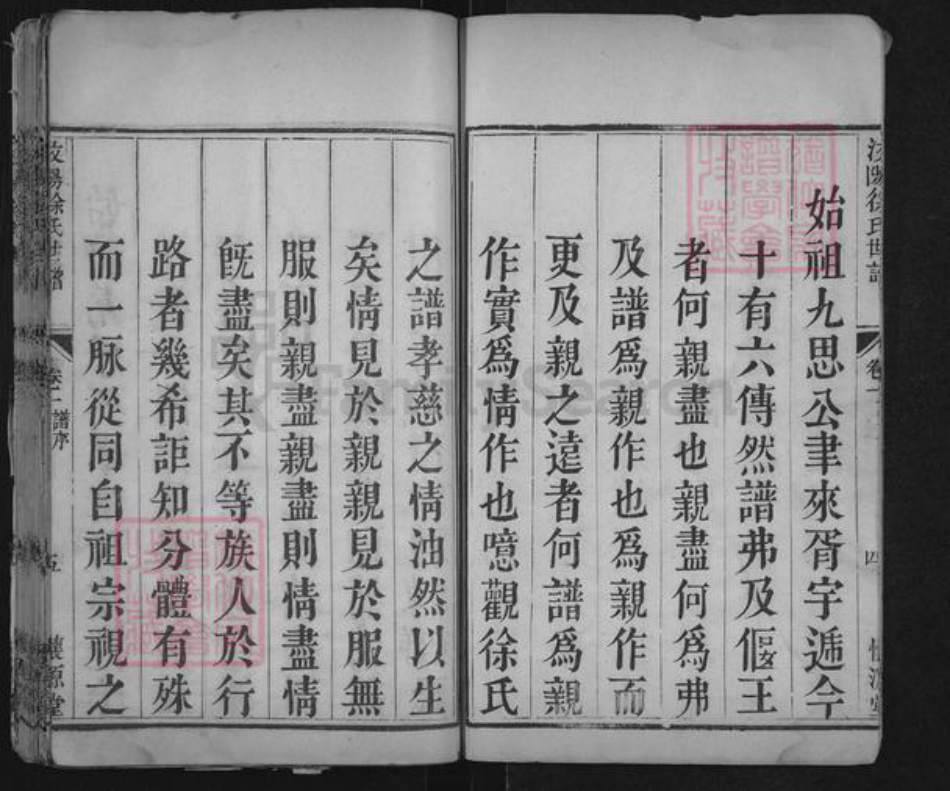 始祖九思公聿來胥宇遞今
十有六傳然譜弗及偃王
者何親盡也親盡何為弗
及譜為親作也為親作而
更及親之遠者何譜為親
作實為情作也噫觀徐氏
之譜孝慈之情油然以生
矣情見於親親見於服無
服則親盡親盡則情盡情
既盡矣其不等族人於行
路者幾希詎知分體有殊
而一脉從同自祖宗視之
徐氏世譜
卷一
四
徐氏世譜
卷一 譜序
五
懷源堂
FamilySearch